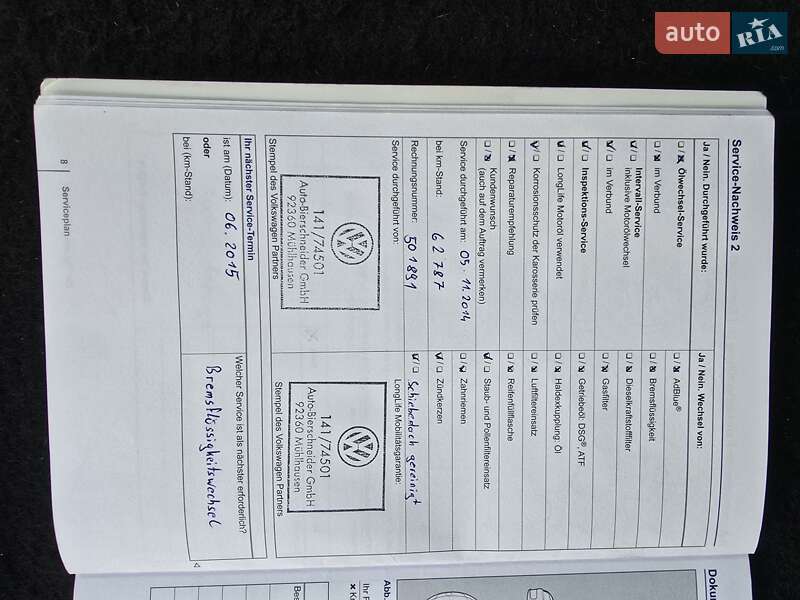 auto RIA.com
Service-Nachweis 2
Ja / Nein. Durchgeführt wurde:
Ölwechsel-Service
im Verbund
Intervall-Service
inklusive Motorölwechsel
im Verbund
Inspektions-Service
LongLife Motoröl verwendet
Korrosionsschutz der Karosserie prüfen
Reparaturempfehlung
Kundenwunsch
(auch auf dem Auftrag vermerken)
Service durchgeführt am: 05.11.2014
bei km-Stand: 62787
Rechnungsnummer: 501891
Service durchgeführt von:
141/74501
Auto-Bierschneider GmbH
92360 Mühlhausen
Stempel des Volkswagen Partners
Ja / Nein. Wechsel von:
AdBlue®
Bremsflüssigkeit
Dieselkraftstofffilter
Gasfilter
Getriebeöl: DSG®, ATF
Haldexkupplung: Öl
Luftfiltereinsatz
Reifenfüllflasche
Staub- und Pollenfiltereinsatz
Zahnriemen
Zündkerzen
Schiebedach gereinigt
LongLife Mobilitätsgarantie:
141/74501
Auto-Bierschneider GmbH
92360 Mühlhausen
Stempel des Volkswagen Partners
Ihr nächster Service-Termin
ist am (Datum): 06.2015
oder
bei (km-Stand):
Welcher Service ist als nächster erforderlich?
Bremsflüssigkeitswechsel
8 Serviceplan